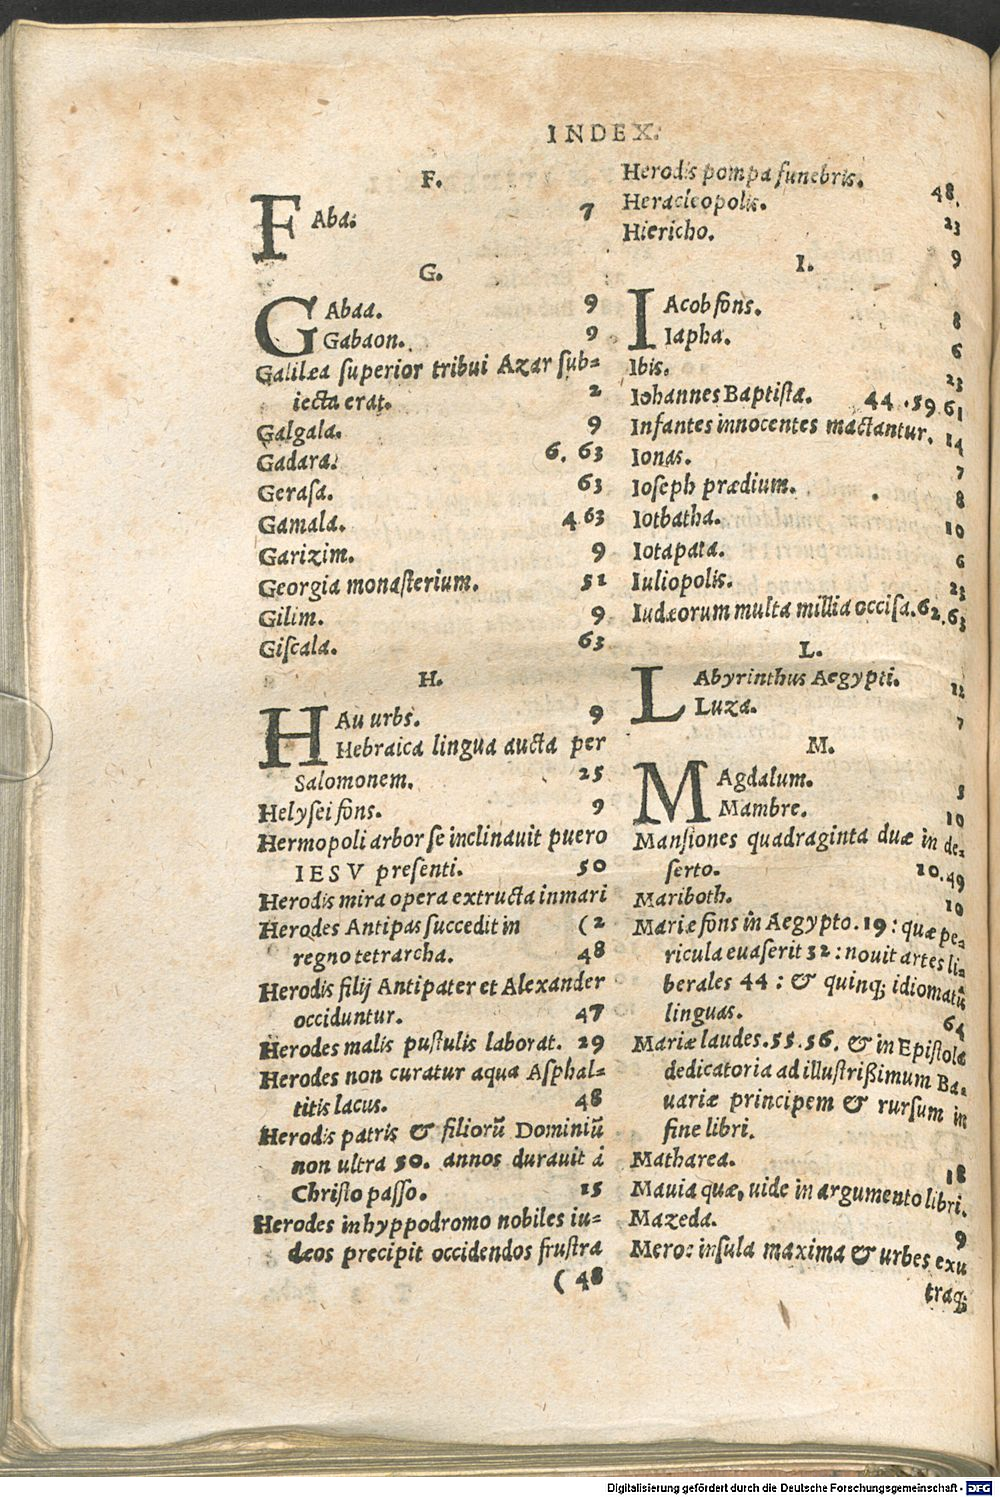 INDEX.
F.
FAba. 7
G.
GAbaa. 9
Gabaon. 9
Galilæa superior tribui Azar sub=
iecta erat. 2
Galgala. 9
Gadara. 6. 63
Gerasa. 63
Gamala. 4 63
Garizim. 9
Georgia monasterium. 51
Gilim. 9
Giscala. 63
H.
HAu urbs. 9
Hebraica lingua aucta per
Salomonem. 25
Helysei fons. 9
Hermopoli arbor se inclinauit puero
IESV presenti. 50
Herodis mira opera extructa in mari
Herodes Antipas succedit in (2
regno tetrarcha. 48
Herodis filij Antipater et Alexander
occiduntur. 47
Herodes malis pustulis laborat. 29
Herodes non curatur aqua Asphal=
titis lacus. 48
Herodis patris & filiorū Dominiū
non ultra 50. annos durauit á
Christo passo. 15
Herodes in hyppodromo nobiles iu=
dæos precipit occidendos frustra
(48
Herodis pompa funebris. 48.
Heracleopolis. 23
Hiericho. 9
I.
IAcob fons. 8
Iapha. 6
Ibis. 23
Iohannes Baptista. 44 .59 61
Infantes innocentes mactantur. 14
Ionas. 7
Ioseph prædium. 8
Iotbatha. 10
Iotapata. 6
Iuliopolis. 23
Iudæorum multa millia occisa. 62. 63
L.
LAbyrinthus Aegypti. 12
Luza. 7
M.
MAgdalum. 5
Mambre. 10
Mansiones quadraginta duæ in de=
serto. 10. 49
Mariboth. 10
Mariæ fons in Aegypto. 19 : quæ pe=
ricula euaserit 32 : nouit artes li=
berales 44 : & quinq; idiomatū
linguas. 64
Mariæ laudes. 55. 56. & in Epistola
dedicatoria ad illustrißimum Ba=
uariæ principem & rursum in
fine libri.
Matharea. 18
Mauia quæ, uide in argumento libri.
Mazeda. 9
Mero: insula maxima & urbes exu
traq;
Digitalisierung gefördert durch die Deutsche Forschungsgemeinschaft - DFG